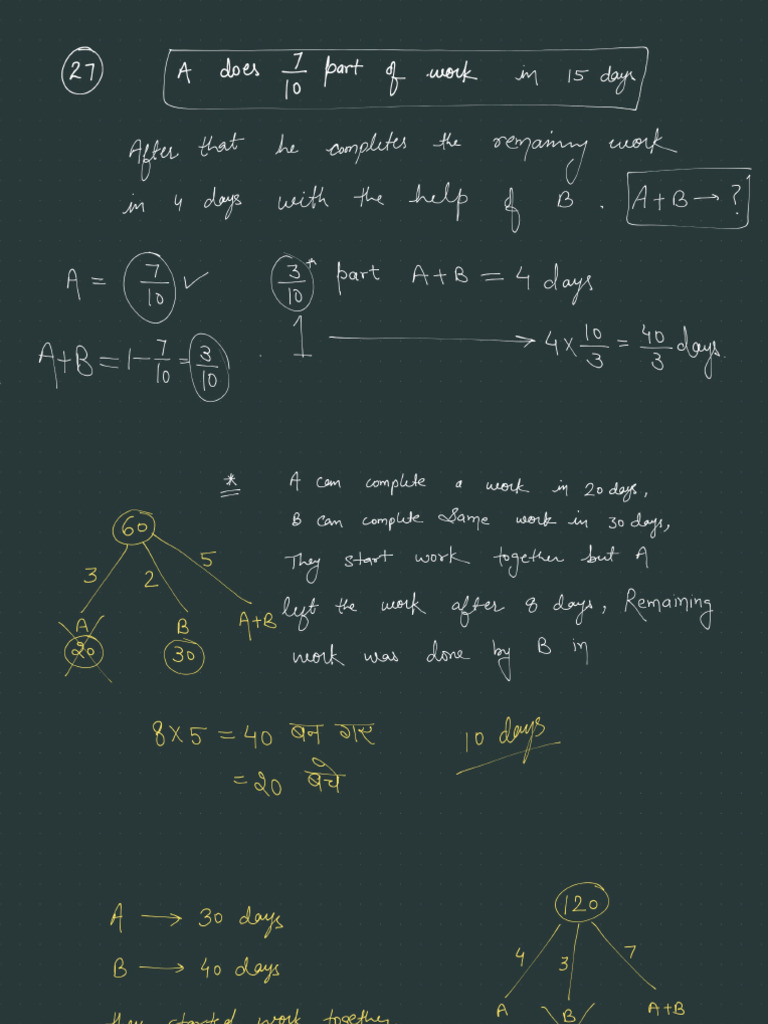 27 A does 7/10 part of work in 15 days
After that he completes the remaining work
in 4 days with the help of B. A+B → ?
A = 7/10 ✓ 3/10* part A+B = 4 days
A+B = 1 - 7/10 = 3/10 . 1 → 4 × 10/3 = 40/3 days.
* A can complete a work in 20 days,
B can complete Same work in 30 days,
They start work together but A
left the work after 8 days, Remaining
work was done by B in
60
3 2 5
A B A+B
20 30
8×5 = 40 बन गए
= 20 बचे
10 days
A → 30 days
B → 40 days
they started work together
120
4 3 7
A B A+B